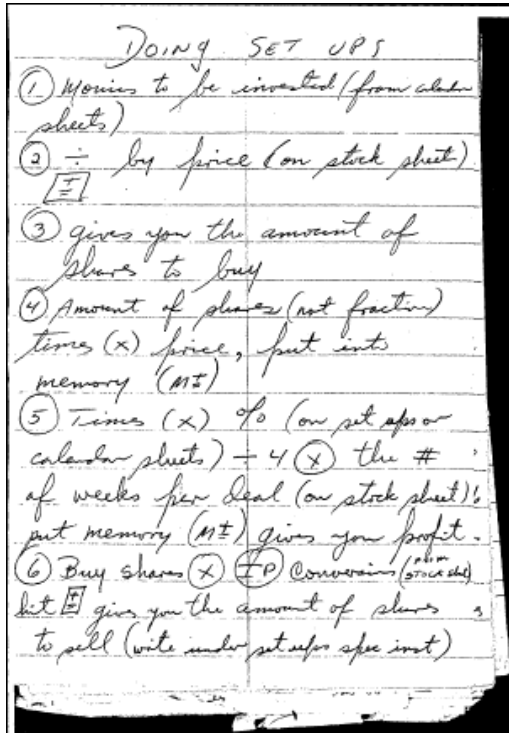 DOING SET UPS
① Monies to be invested (from calendar
sheets)
② ÷ by price (on stock sheet)
±
③ gives you the amount of
shares to buy
④ Amount of shares (not fraction)
times (x) price, put into
memory (M±)
⑤ Times (x) % (on set ups or
calendar sheets) ÷ 4 ⓧ the #
of weeks per deal (on stock sheet)
put memory (M±) gives you profit.
⑥ Buy shares ⓧ IP Conversions (FROM STOCK sheet)
hit ± gives you the amount of shares
to sell (write under set ups spec inst)